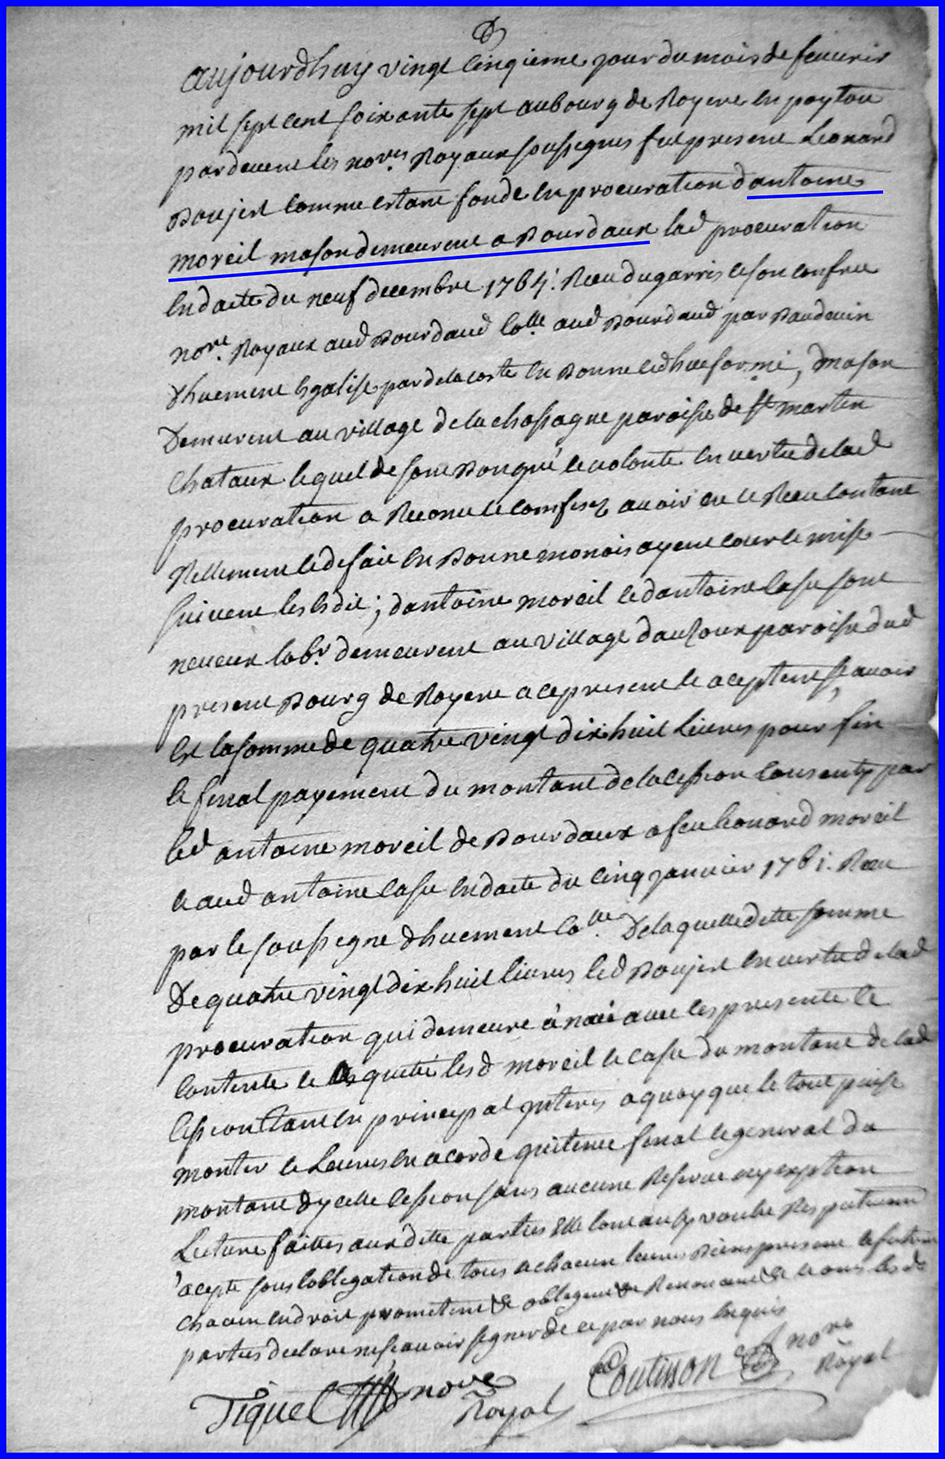 aujourdhuy vingt cinqieme jour du mois de feuvrier
mil sept cent soixante sept au bourg de Royere en poytou
pardevent les nores Royaux soussignes fut present Leonard
Boujent comme estant fondé en procuration dantoine
moreil mason demeurent a Bourdaux lad procuration
en datte du neuf decembre 1764: Reeu dugarris et son confrere
nore. Royaux aud Bourdaud collé aud Bourdaud par Baudouin
dhuement egalisé par delacoste en bonne et dhue forme, mason
demeurent au village de la chassagne paroisse de st martin
chataux lequel de son bon gré et volonté en vertu de lad
procuration a Reconu et confessé avoir eu et Reeu contant
Rellement et de fait en bonne monois ayent cour et mise
suivent les esdit; dantoine moreil et dantoine Casse sont
neveux labr. demeurent au village dauzoux paroisse dud
present bourg de Royere a ce present et aceptent, savoir
est la somme de quatre vingt dix huit livres pour fin
et final payement du montant de la cession consenty par
led antoine moreil de Bourdaux a feu Leonard moreil
et aud antoine Casse en datte du cinq janvier 1761. Reeu
par le soussigné dhuement collé. De laquelle dite somme
de quatre vingt dix huit livres led Boujent en vertu de lad
procuration qui demeure anéxé avec les presente se
contente et a quitté lesd moreil et casse du montant de lad
cession tant en principal interes a quoy que le tout puisse
monter et leurs en acorde quitence final et general du
montant dycelle cession sans aucune Reserve ny exption
Lecture faittes aux dite parties elle lont ainsy voulu stipullé
acepté sous lobligation de tous et chacun leurs biens present et futur
chacun endroit prometent & obligent & Renoncent & et ont lesd
parties declare ne scavoir signer de ce par nous enquis
Coutisson nore
Royal
Tiquet nore
Royal